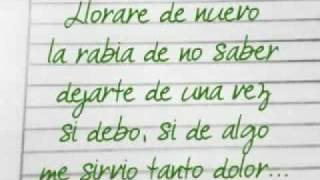 Llorare de nuevo
la rabia de no saber
dejarte de una vez
si debo, si de algo
me sirvio tanto dolor...